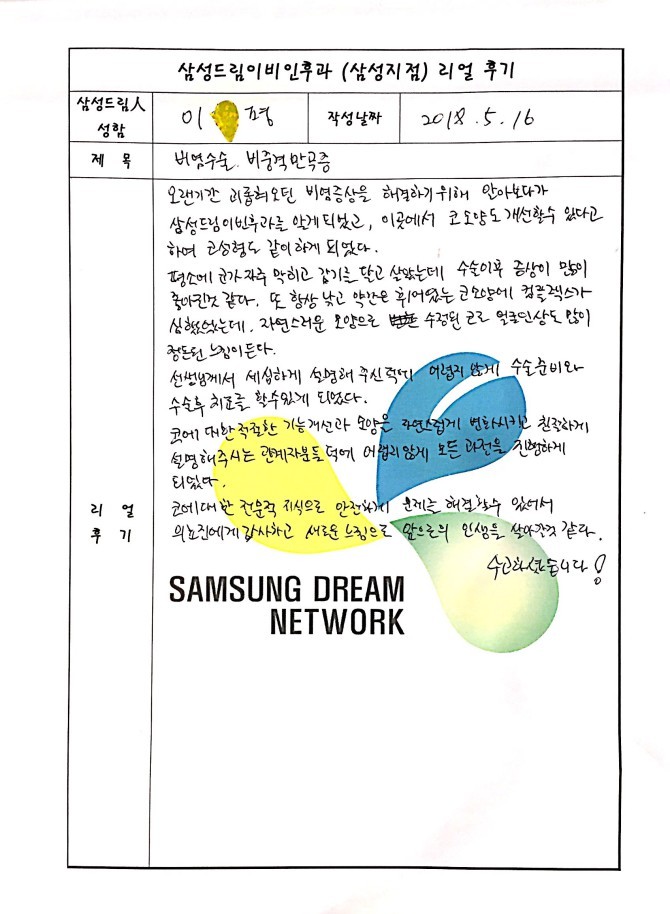 삼성드림이비인후과 (삼성지점) 리얼 후기
삼성드림人
성함
이 평
작성날짜
2018. 5. 16
제 목
비염수술. 비중격만곡증
오랜기간 괴롭혀오던 비염증상을 해결하기위해 알아보다가
삼성드림이비인후과를 알게되었고, 이곳에서 코모양도 개선할수 있다고
하여 코성형도 같이하게 되었다.
평소에 코가 자주 막히고 감기를 달고 살았는데 수술이후 증상이 많이
좋아진것 같다. 또 항상 낮고 약간은 휘어있는 코모양에 컴플렉스가
심했었는데, 자연스러운 모양으로 수정된 코로 얼굴인상도 많이
정돈된 느낌이든다.
선생님께서 세심하게 설명해 주신덕에 어렵지 않게 수술준비와
수술후 치료를 할수있게 되었다.
코에 대한적절한 기능개선과 모양을 자연스럽게 변화시키고 친절하게
설명해주시는 관계자분들 덕에 어렵지않게 모든 과정을 진행하게
되었다.
리 얼
후 기
코에대한 전문적 지식으로 안전하게 문제를 해결할수 있어서
의료진에게 감사하고 새로운 느낌으로 앞으로의 인생을 살아갈것 같다.
수고하셨습니다!
SAMSUNG DREAM
NETWORK